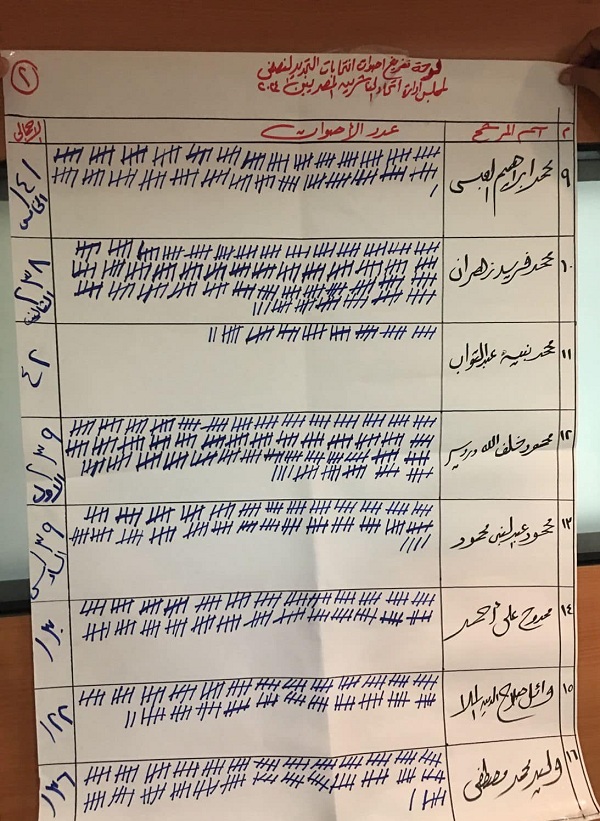 ٢
لوحة تفريغ أصوات انتخابات التجديد النصفى
لمجلس إدارة اتحاد الناشرين المصريين
م اسم المرشح عدد الأصوات الإجمالى
٩ محمد ابراهيم العبسى ١٤١ الخامس
١٠ محمد فريد زهران ٢٣٨ الثانى
١١ محمد نبيه عبدالتواب ٤٢
١٢ محمود خلف الله ٢٣٩ الأول
١٣ محمود عبدالنبى محمود ١٣٩ السادس
١٤ ممدوح على أحمد
١٥ وائل صلاح الدين الملا ١٢٢
١٦ وليد محمد مصطفى ١٣٦